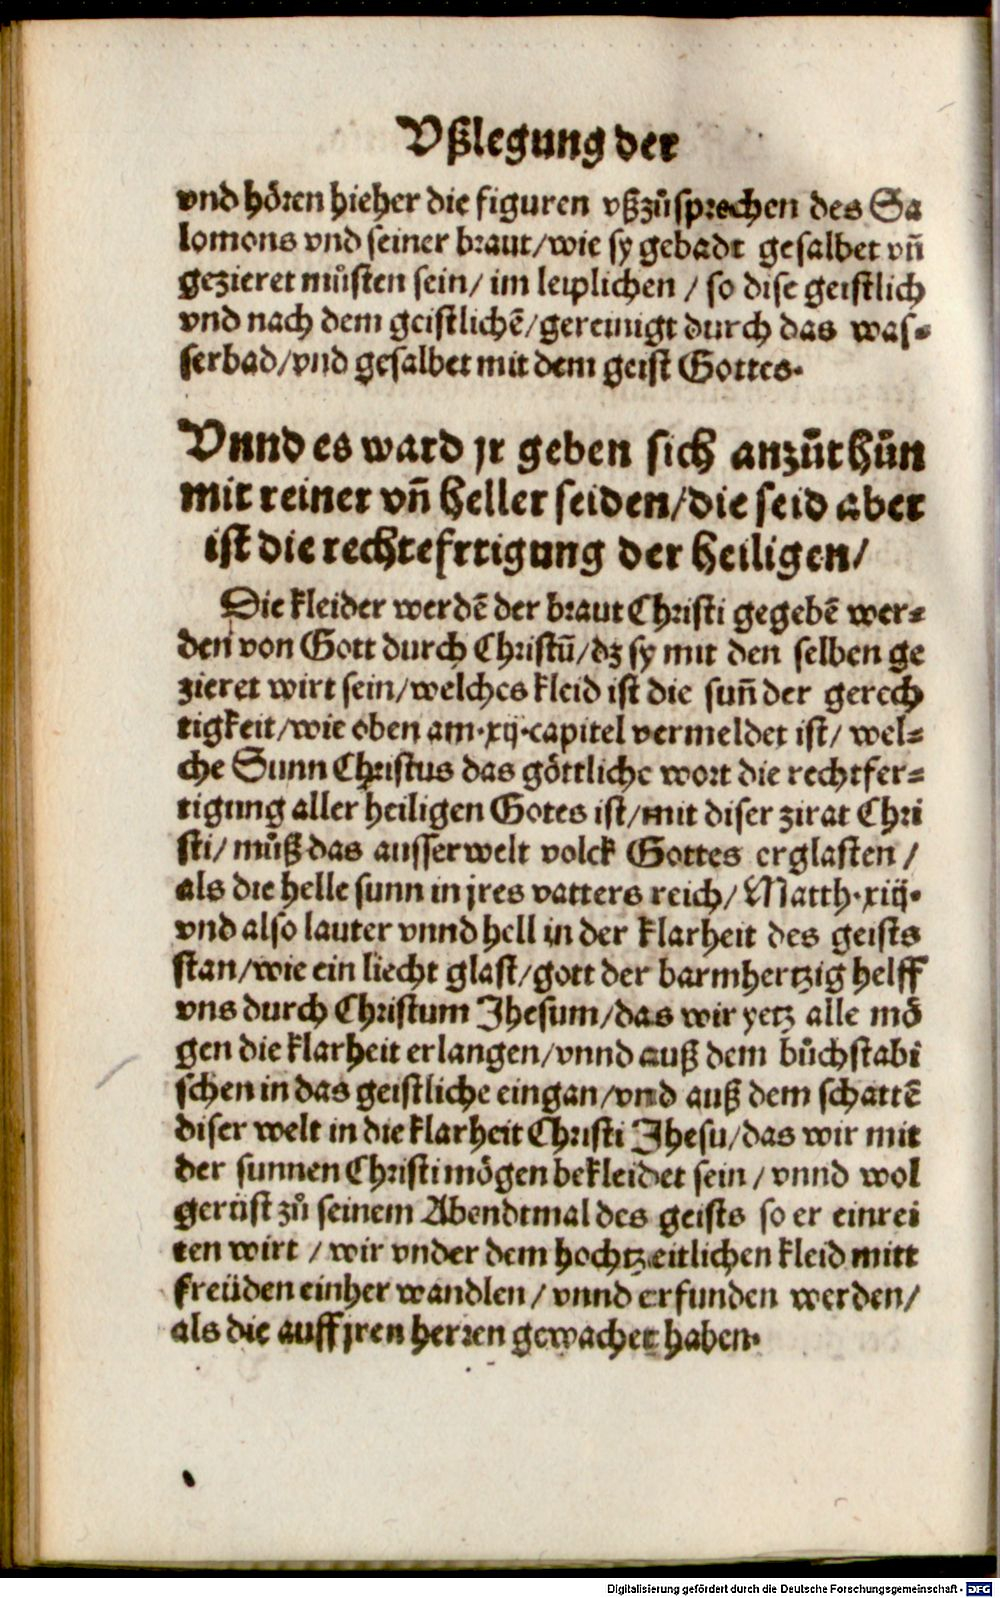 Vßlegung der
vnd hören hieher die figuren vßzůsprechen des Sa
lomons vnd seiner braut/wie sy gebadt gesalbet vñ
gezieret můsten sein/ im leiplichen / so dise geistlich
vnd nach dem geistlichẽ/gereinigt durch das was⸗
serbad/vnd gesalbet mit dem geist Gottes.
Vnnd es ward jr geben sich anzůthůn
mit reiner vñ heller seiden/die seid aber
ist die rechtefrtigung der heiligen/
Die kleider werdẽ der braut Christi gegebẽ wer⸗
den von Gott durch Christũ/dz sy mit den selben ge
zieret wirt sein/welches kleid ist die suñ der gerech
tigkeit/wie oben am.xij.capitel vermeldet ist/ wel⸗
che Sunn Christus das göttliche wort die rechtfer⸗
tigung aller heiligen Gotes ist/mit diser zirat Chri
sti/ můß das ausserwelt volck Gottes erglasten /
als die helle sunn in jres vatters reich/ Matth.xiij.
vnd also lauter vnnd hell in der klarheit des geists
stan/wie ein liecht glast/gott der barmhertzig helff
vns durch Christum Jhesum/das wir yetz alle mö
gen die klarheit erlangen/vnnd auß dem bůchstabi
schen in das geistliche eingan/vnd auß dem schattẽ
diser welt in die klarheit Christi Jhesu/das wir mit
der sunnen Christi mögen bekleidet sein/ vnnd wol
gerüst zů seinem Abendtmal des geists so er einrei
ten wirt / wir vnder dem hochtzeitlichen kleid mitt
freüden einher wandlen / vnnd erfunden werden/
als die auff jren herren gewachet haben.
Digitalisierung gefördert durch die Deutsche Forschungsgemeinschaft - DFG